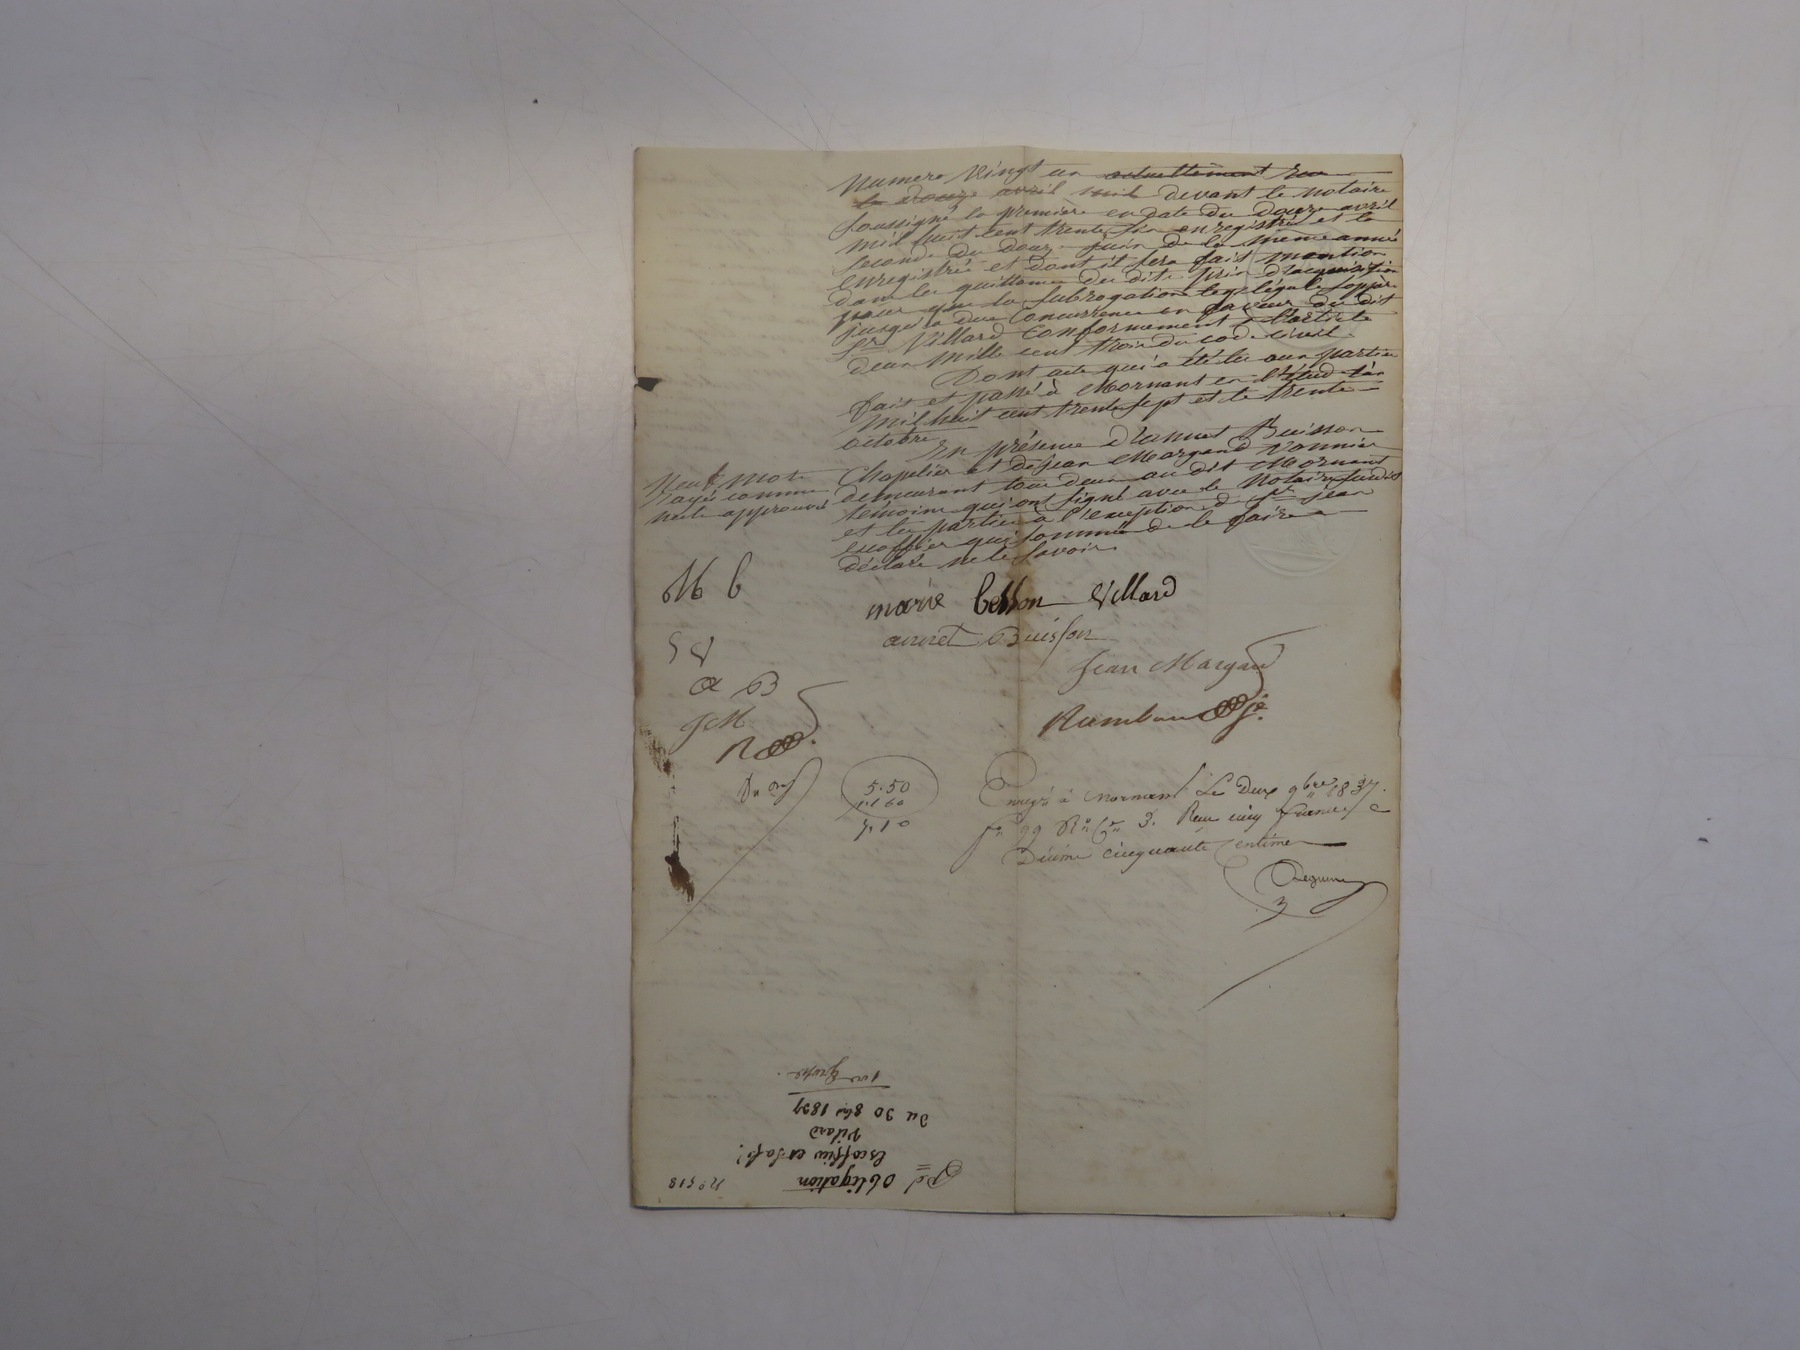 numero vingt un actuellement rue
le douze avril mil devant le notaire
soussigné la première en date du douze avril
mil huit cent trente six enregistré et la
seconde du douze juin de la meme année
enregistrée et dont il sera fait mention
dans les quittances du dits prix d'acquisition
pour que la subrogation legal légale sopère
jusqu'a due concurrence en faveur du dit
Sr Villard conformement à l'article
deux mille cent trois du code civil
Dont acte qui a été lu aux parties
fait et passé à Mornant en l'étud l'an
mil huit cent trente sept et le trente
octobre
En présence d'annet Buisson
Chapelier et de jean Margand Vannier
demeurant tous deux au dit Mornant
temoins qui ont signé avec le Notaire susdit
et les parties à l'exception de Sr jean
escoffier qui sommé de le faire a
déclaré ne le savoir
Neuf mots
rayés comme
nuls approuvé
M b
S V
a B
J M
R
marie besson Villard
annet Buisson
Jean Margand
5.50
1.60
7.10
Enregé à Mornant Le Deux 9bre 1837.
fo 99 Ro Ce 3. Reçu cinq francs
Décime cinquante centimes
No 518
Obligation
Escoffier et sa fe
Vilard
du 30 8bre 1837
1ere Grosse.